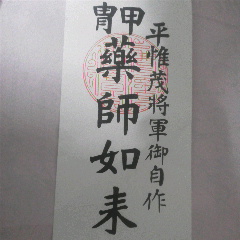 平惟茂將軍御自作
甲冑
藥師如来